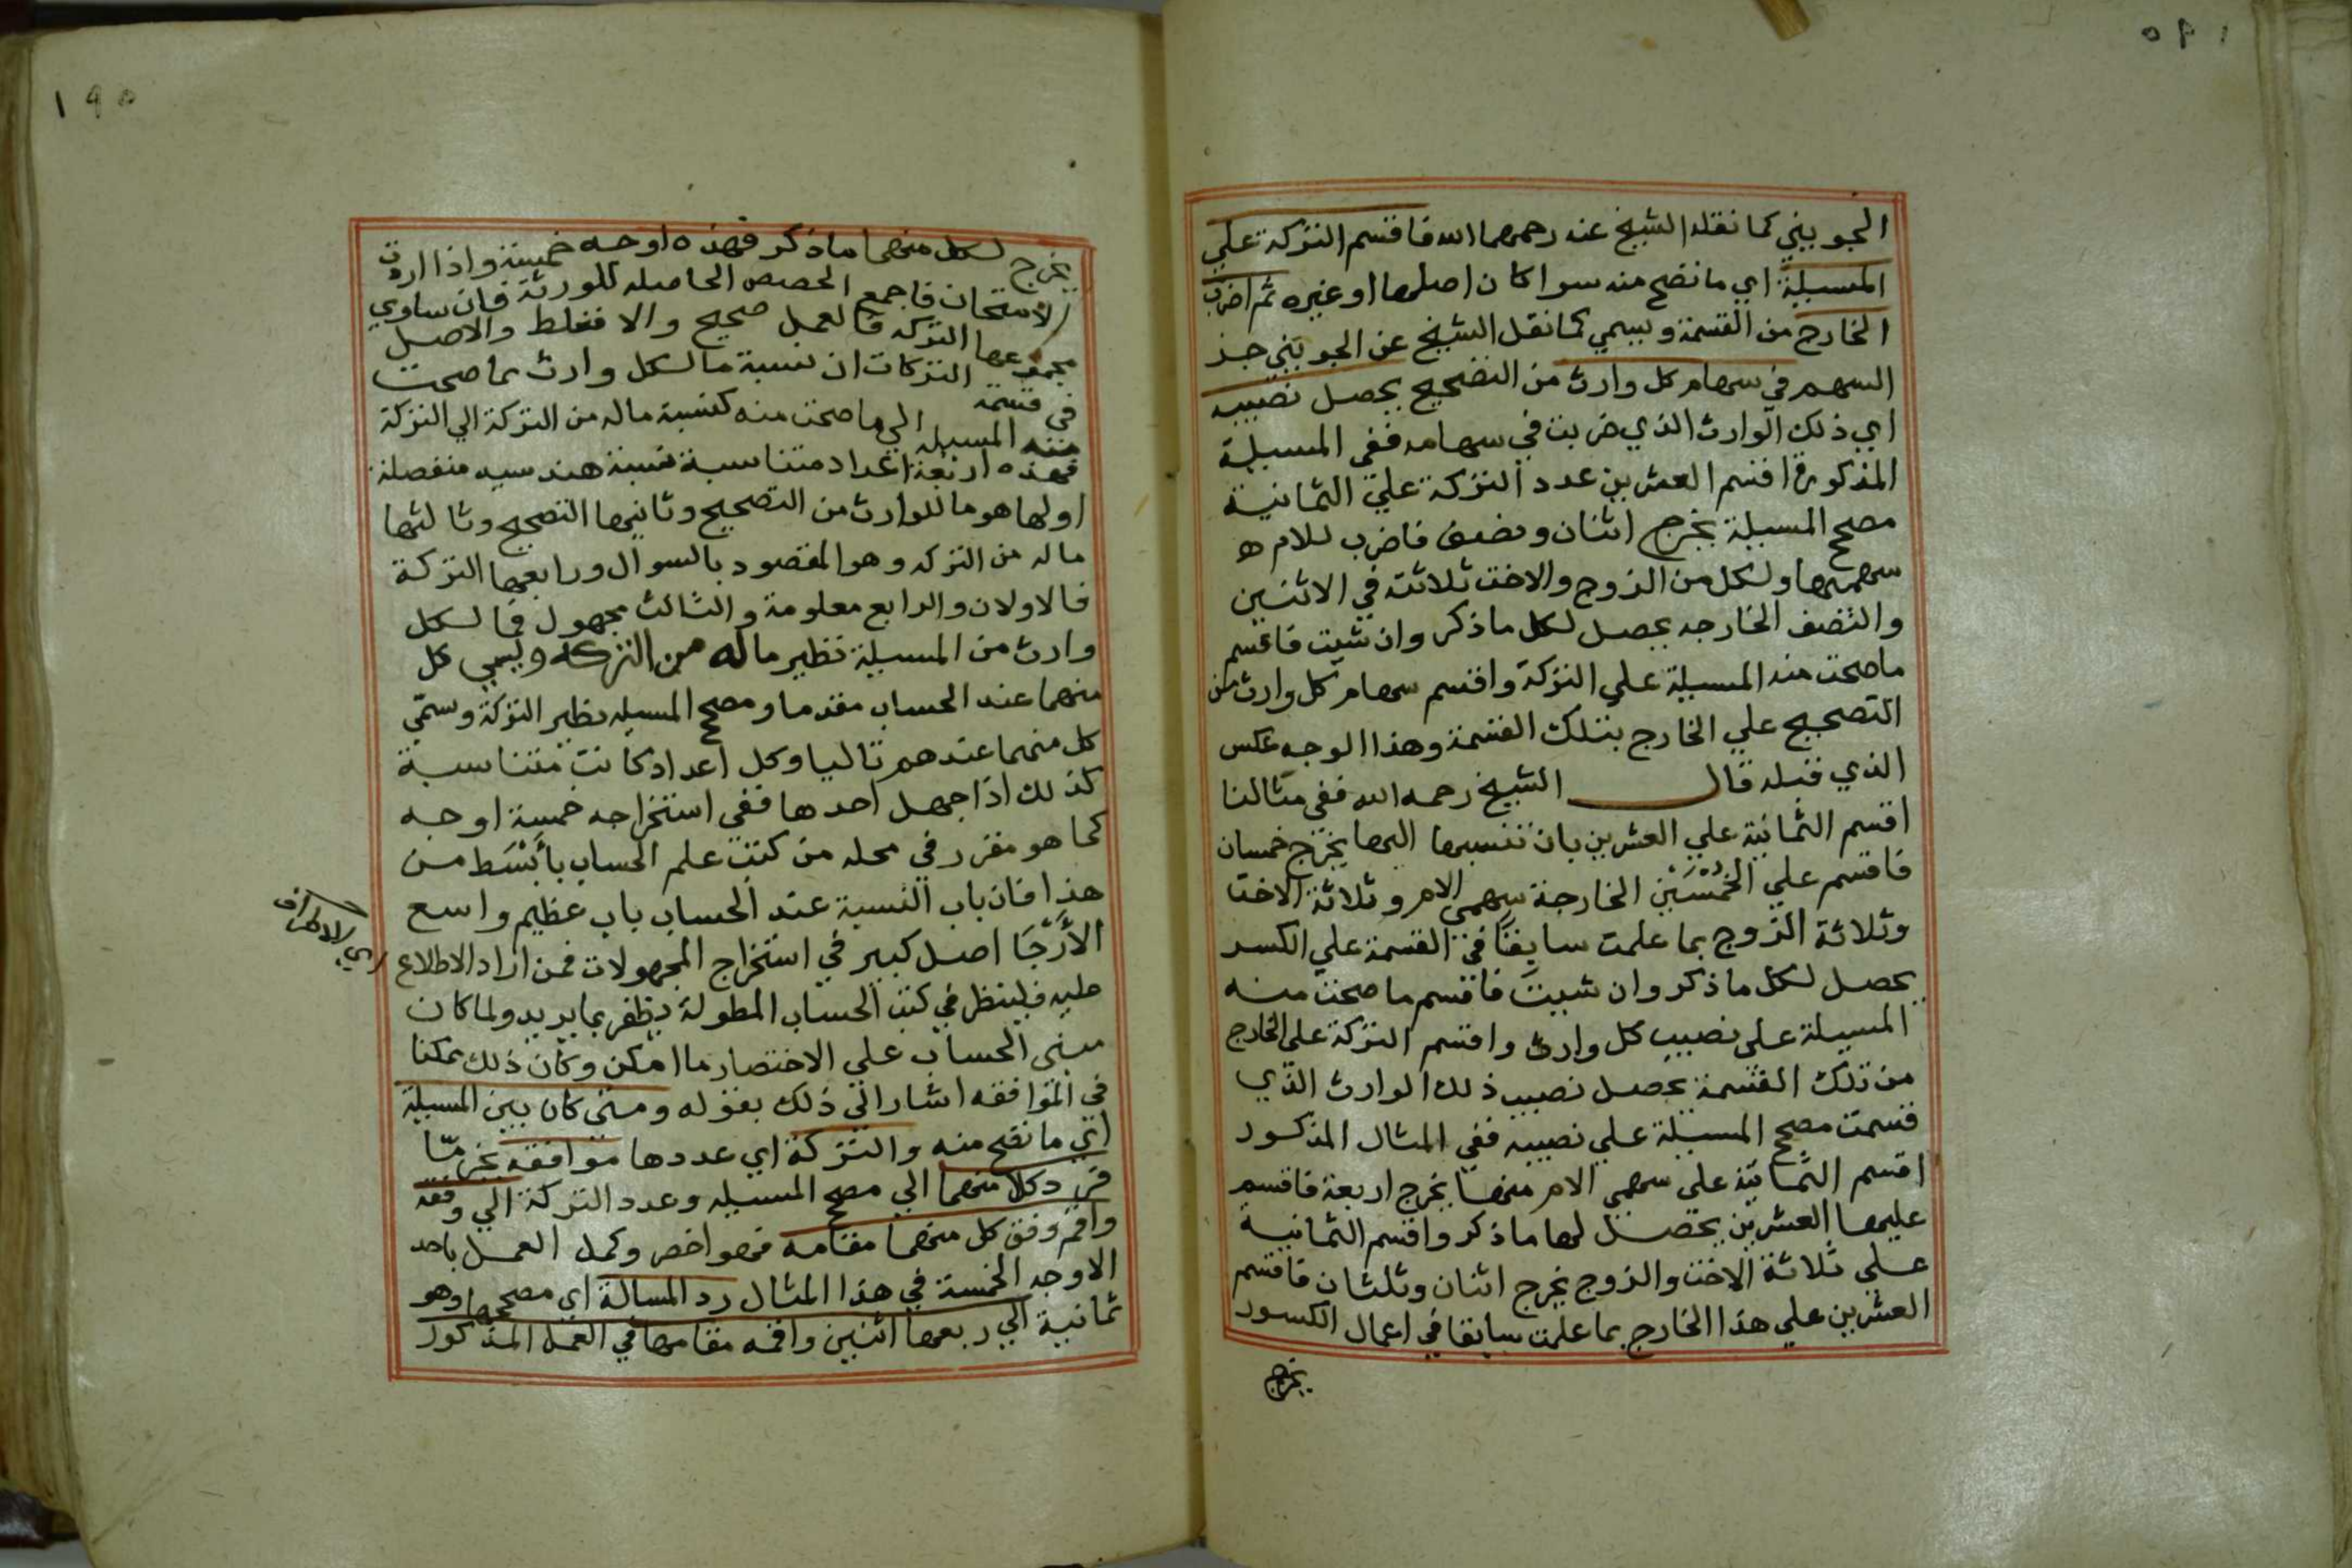 الجويني كما نقله الشيخ عنه رحمهما الله فاقسم التركة علي
المسيلة اي ما تصح منه سوا كان اصلها او غيره ثم اضرب
الخارج من القسمة ويسمي كما نقل الشيخ عن الجويني جز
السهم في سهام كل وارث من التصحيح يحصل نصيبه
اي ذلك الوارث الذي ضربت في سهامه ففي المسيلة
المذكورة اقسم العشرين عدد التركة علي الثمانية
مصحح المسيلة يخرج اثنان ونصف فاضرب للام
سهميها ولكل من الزوج والاخت ثلاثته في الاثنين
والنصف الخارجه يحصل لكل ما ذكر وان شيت فاقسم
ما صحت منه المسيلة علي التركة واقسم سهام كل وارث من
التصحيح علي الخارج بتلك القسمة وهذا الوجه عكس
الذي قبله قال الشيخ رحمه الله ففي مثالنا
اقسم الثمانية علي العشرين بان تنسبها اليها يخرج خمسان
فاقسم علي الخُمْسَيْن الخارجة سهمي الام وثلاثة الاخت
وثلاثة الزوج بما علمت سابقًا في القسمة علي الكسر
يحصل لكل ما ذكر وان شيت فاقسم ما صحت منه
المسيلة علي نصيب كل وارث واقسم التركة علي الخارج
من تلك القسمة يحصل نصيب ذلك الوارث الذي
قسمت مصحح المسيلة علي نصيبه ففي المثال المذكور
اقسم الثمانية علي سهمي الام منها يخرج اربعة فاقسم
عليها العشرين يحصل لها ما ذكر واقسم الثمانية
علي ثلاثة الاخت والزوج يخرج اثنان وثلثان فاقسم
العشرين علي هذا الخارج بما علمت سابقا في اعمال الكسور
يخرج
١٩٥
يخرج لكل منهما ما ذكر فهذه اوجه خمسة واذا اردت
الامتحان فاجمع الحصص الحاصله للورثة فان ساوي
مجموعها التركه فالعمل صحيح والا فغلط والاصل
في قسمة التركات ان نسبة ما لكل وارث مما صحت
منه المسيله الي ما صحت منه كنسبة ماله من التركة الي التركة
فهذه اربعة اعداد متناسبة نسبة هندسيه منفصلة
اولها هو ما للوارث من التصحيح وثانيها التصحيح وثالثها
ماله من التركه وهو المقصود بالسوال ورابعها التركة
فالاولان والرابع معلومة والثالث مجهول فما لكل
وارث من المسيلة نظير ماله من التركه ويسمي كل
منهما عند الحساب مقدما ومصحح المسيله نظير التركة وسمّي
كل منهما عندهم تاليا وكل اعداد كانت متناسبة
كذلك اذا جهل احدها ففي استخراجه خمسة اوجه
كما هو مقرر في محله من كتب علم الحساب بأَبْسَط من
هذا فان باب النسبة عند الحساب باب عظيم واسع
الأَرْجَا اصل كبير في استخراج المجهولات فمن اراد الاطلاع
عليه فلينظر في كتب الحساب المطولة يظفر بما يريد ولما كان
مبني الحساب علي الاختصار ما امكن وكان ذلك ممكنا
في الموافقه اشار الي ذلك بقوله ومتي كان بين المسيلة
اي ما تصح منه والتركة اي عددها موافقه بجز مّا
فرد كلا منهما الي مصحح المسيله وعدد التركة الي وفقه
واقم وفق كل منهما مقامه فهو اخصر وكمل العمل باحد
الاوجه الخمسة في هذا المثال رد المسالة اي مصححها وهو
ثمانية الي ربعها اثنين واقمه مقامها في العمل المذكور
اي الاطراف
١٩٥